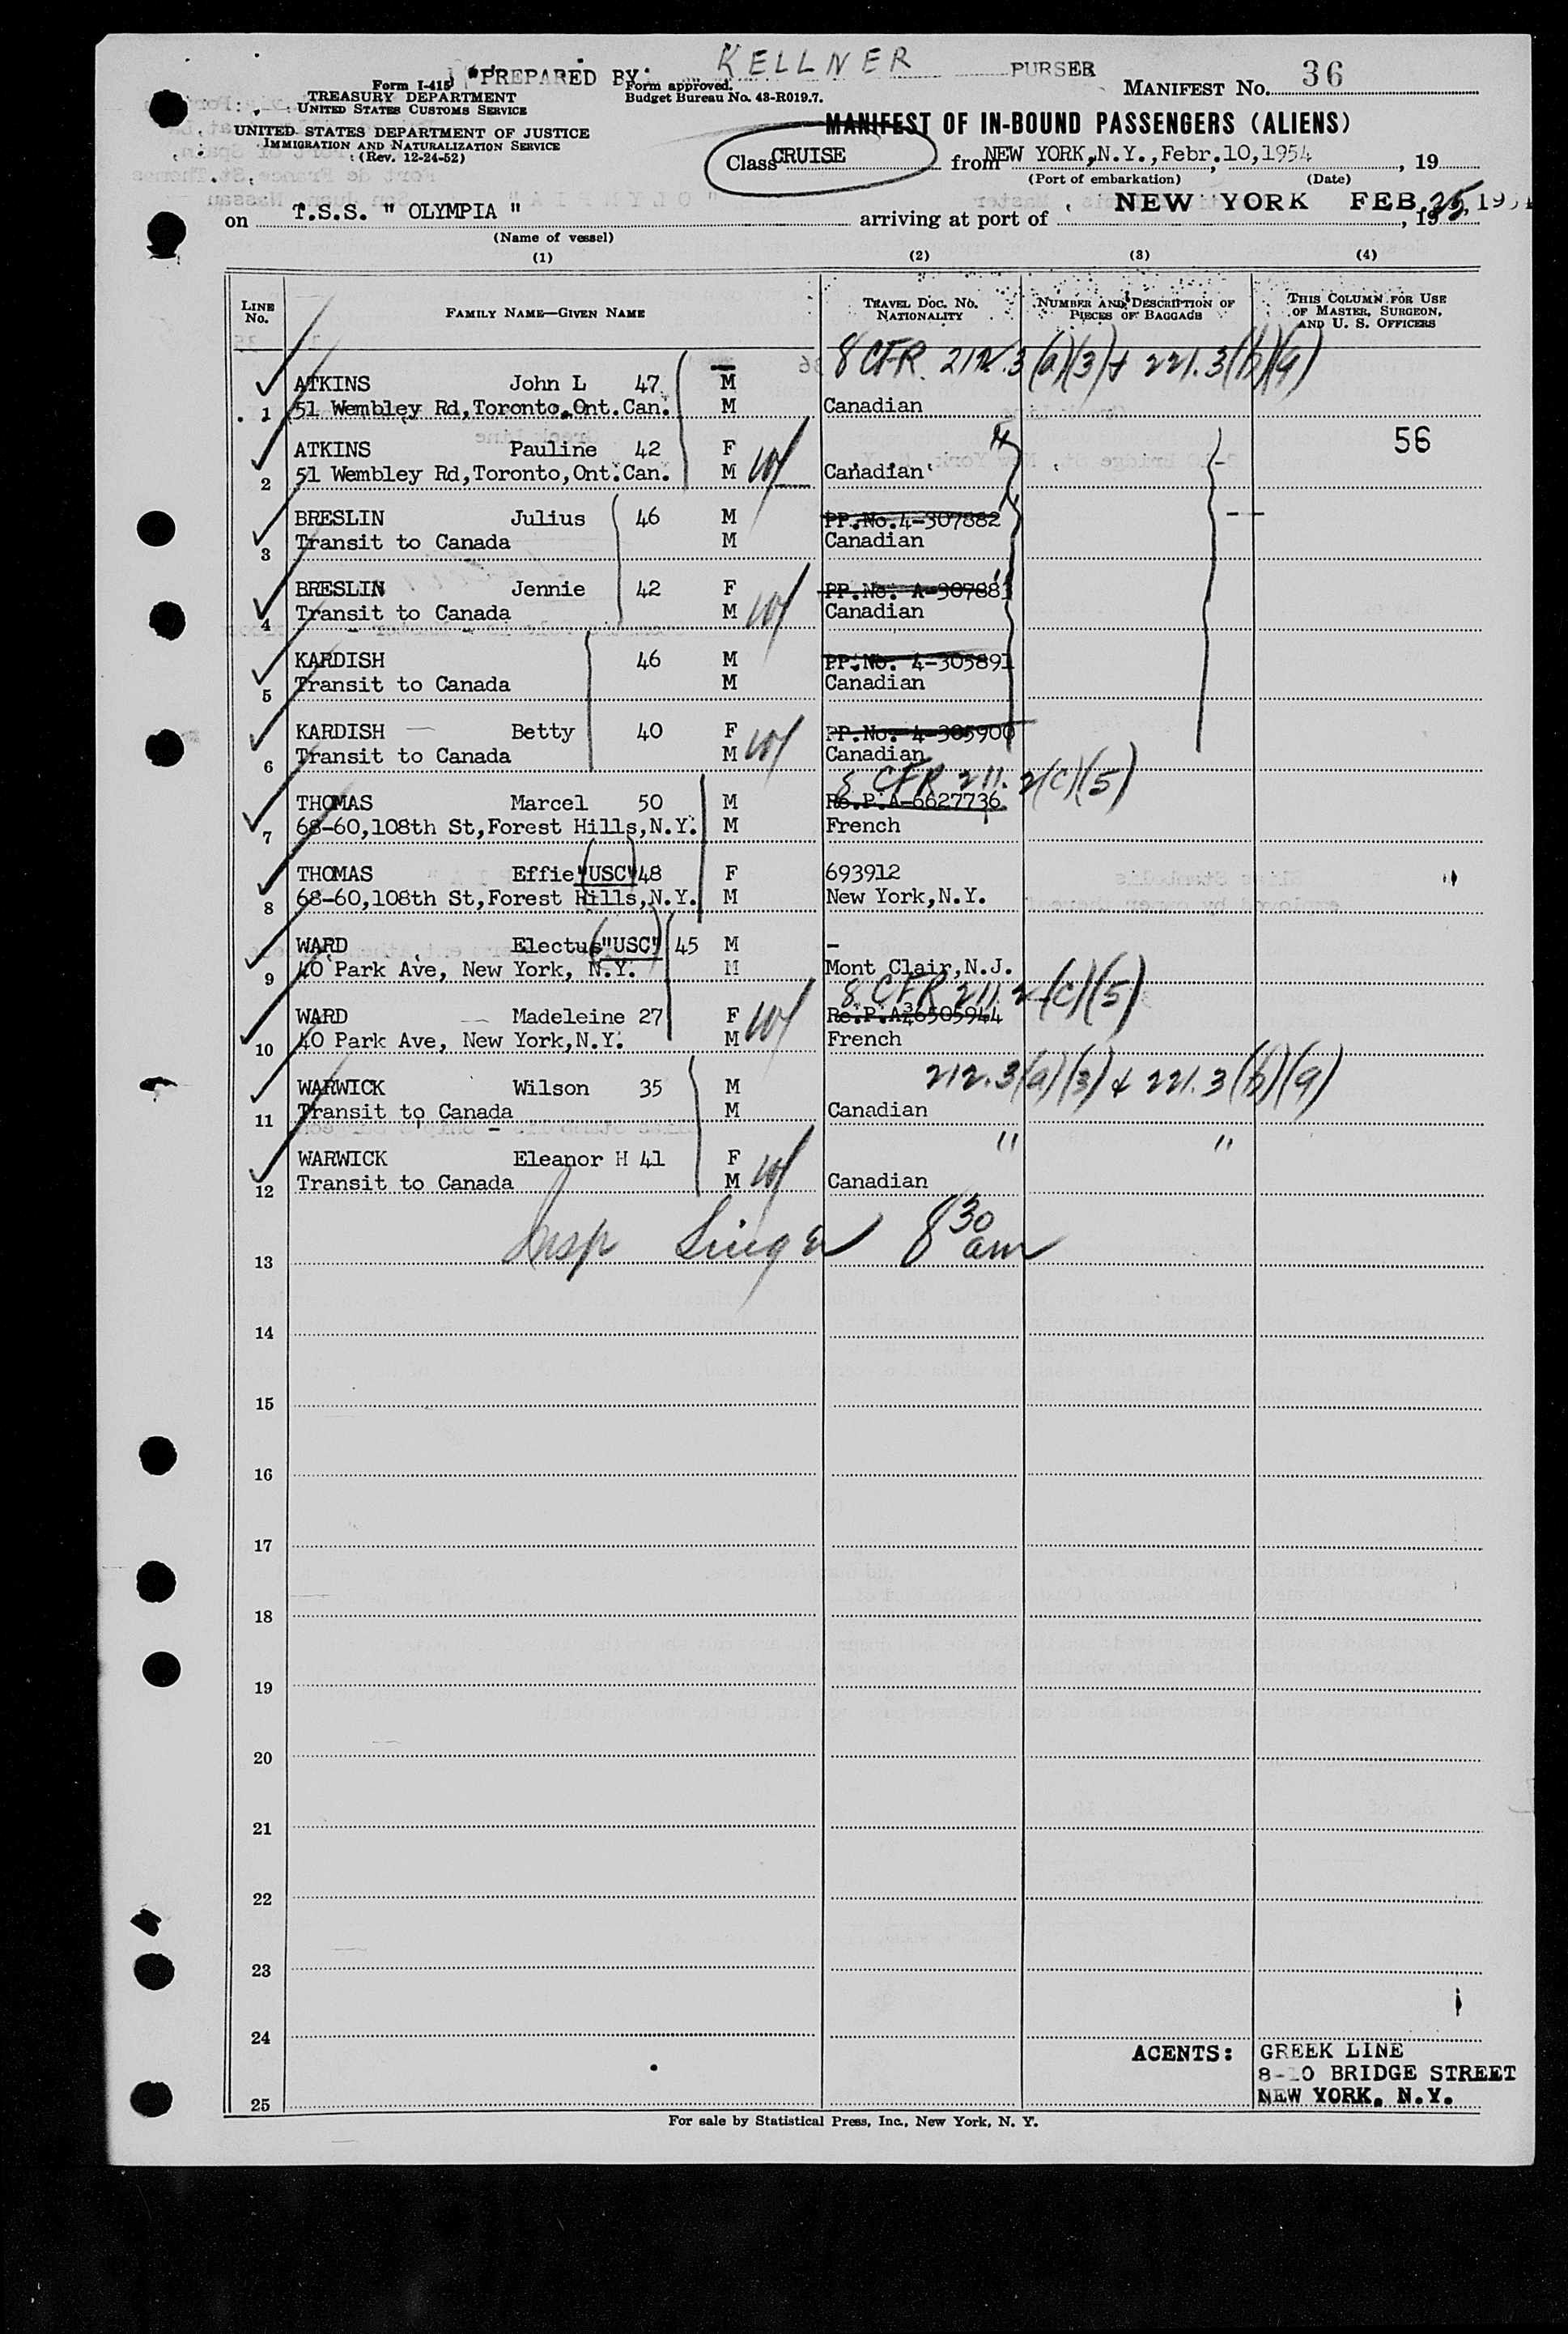 "PREPARED BY: KELLNER PURSER
Form I-415
TREASURY DEPARTMENT
UNITED STATES CUSTOMS SERVICE
UNITED STATES DEPARTMENT OF JUSTICE
IMMIGRATION AND NATURALIZATION SERVICE
(Rev. 12-24-52)
Form approved.
Budget Bureau No. 43-R019.7.
MANIFEST No. 36
MANIFEST OF IN-BOUND PASSENGERS (ALIENS)
Class CRUISE from NEW YORK, N.Y., Febr.10,1954, 19
(Port of embarkation) (Date)
on T.S.S. " OLYMPIA " arriving at port of NEW YORK FEB. 25, 195
(Name of vessel)
(1) (2) (3) (4)
LINE No.
FAMILY NAME—GIVEN NAME
TRAVEL DOC. NO. NATIONALITY
NUMBER AND DESCRIPTION OF PIECES OF BAGGAGE
THIS COLUMN FOR USE OF MASTER, SURGEON, AND U. S. OFFICERS
8 CFR. 212.3(a)(3) + 221.3(b)(9)
ATKINS John L 47 M
1 51 Wembley Rd,Toronto.Ont.Can. M Canadian
ATKINS Pauline 42 F 56
2 51 Wembley Rd,Toronto,Ont.Can. M Canadian
BRESLIN Julius 46 M PP.No.4-307882
3 Transit to Canada M Canadian
BRESLIN Jennie 42 F PP.No. A-307883
4 Transit to Canada M Canadian
KARDISH 46 M PP.No. 4-305891
5 Transit to Canada M Canadian
KARDISH Betty 40 F PP.No. 4-305900
6 Transit to Canada M Canadian
8 CFR 211.2(c)(5)
THOMAS Marcel 50 M Re.P.A-6627736
7 68-60,108th St,Forest Hills,N.Y. M French
THOMAS Effie "USC" 48 F 693912
8 68-60,108th St,Forest Hills,N.Y. M New York,N.Y.
WARD Electus "USC" 45 M -
9 40 Park Ave, New York, N.Y. M Mont Clair,N.J.
8 CFR 211.2(c)(5)
WARD Madeleine 27 F Re.P.A 6505944
10 40 Park Ave, New York,N.Y. M French
212.3(a)(3) + 221.3(b)(9)
WARWICK Wilson 35 M
11 Transit to Canada M Canadian
" "
WARWICK Eleanor H 41 F
12 Transit to Canada M Canadian
Insp Singer 8 30 am
13
14
15
16
17
18
19
20
21
22
23
24
25
AGENTS: GREEK LINE
8-10 BRIDGE STREET
NEW YORK, N.Y.
For sale by Statistical Press, Inc., New York, N. Y.